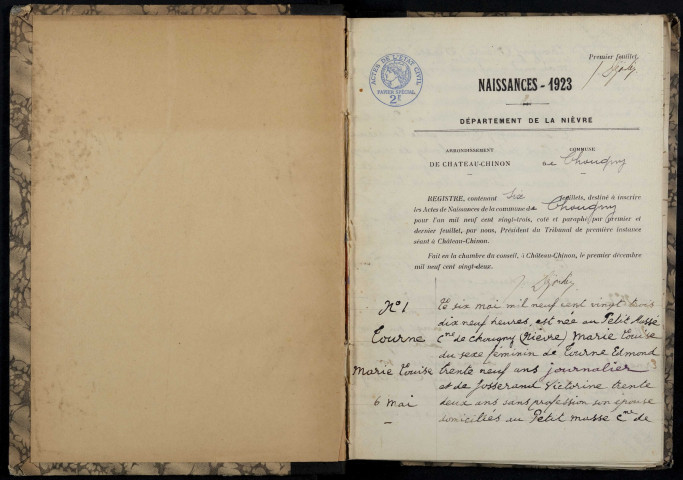 Premier feuillet.
ACTES DE L'ETAT CIVIL
PAPIER SPÉCIAL
2F
NAISSANCES - 1923
DÉPARTEMENT DE LA NIÈVRE
ARRONDISSEMENT
COMMUNE
DE CHATEAU-CHINON
de Chougny
REGISTRE, contenant Six feuillets, destiné à inscrire
les Actes de Naissances de la commune de Chougny
pour l'an mil neuf cent vingt-trois, coté et paraphé par premier et
dernier feuillet, par nous, Président du Tribunal de première instance
séant à Château-Chinon.
Fait en la chambre du conseil, à Château-Chinon, le premier décembre
mil neuf cent vingt-deux.
N° 1
Tourne
Marie Louise
6 mai
Le six mai mil neuf cent vingt trois
dix neuf heures, est née au Petit Massé
Cne de Chougny (Nièvre) Marie Louise
du sexe féminin de Tourne Edmond
trente neuf ans journalier
et de Josserand Victorine trente
deux ans sans profession son épouse
domiciliés au Petit masse Cne de